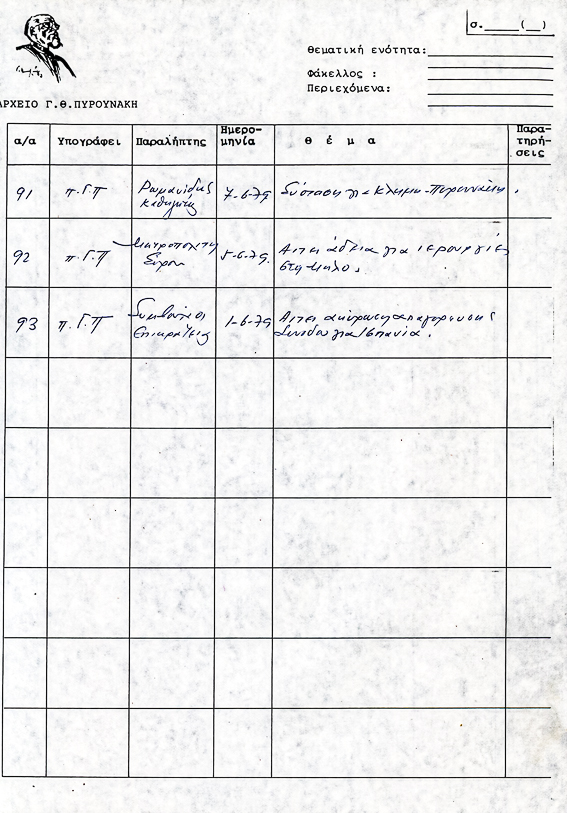 σ.____(__)
Θεματική ενότητα:
Φάκελλος :
Περιεχόμενα:
ΑΡΧΕΙΟ Γ.Θ.ΠΥΡΟΥΝΑΚΗ
α/α Υπογράφει Παραλήπτης Ημερο- μηνία Θ έ μ α Παρα- τηρή- σεις
91 π.Γ.Π Ρωμανίδης 7-6-79 Σύσταση για Κλημ. Πυρουνάκη.
καθηγητής
92 π.Γ.Π Μητροπολίτη 5-6-79. Αιτεί άδεια για ιερουργίες
Σύρου στη Μήλο.
93 π.Γ.Π Συμβούλιο 1-6-79 Αιτεί ακύρωση απαγόρευσης
Επικρατείας Συνόδου για Ισπανία.